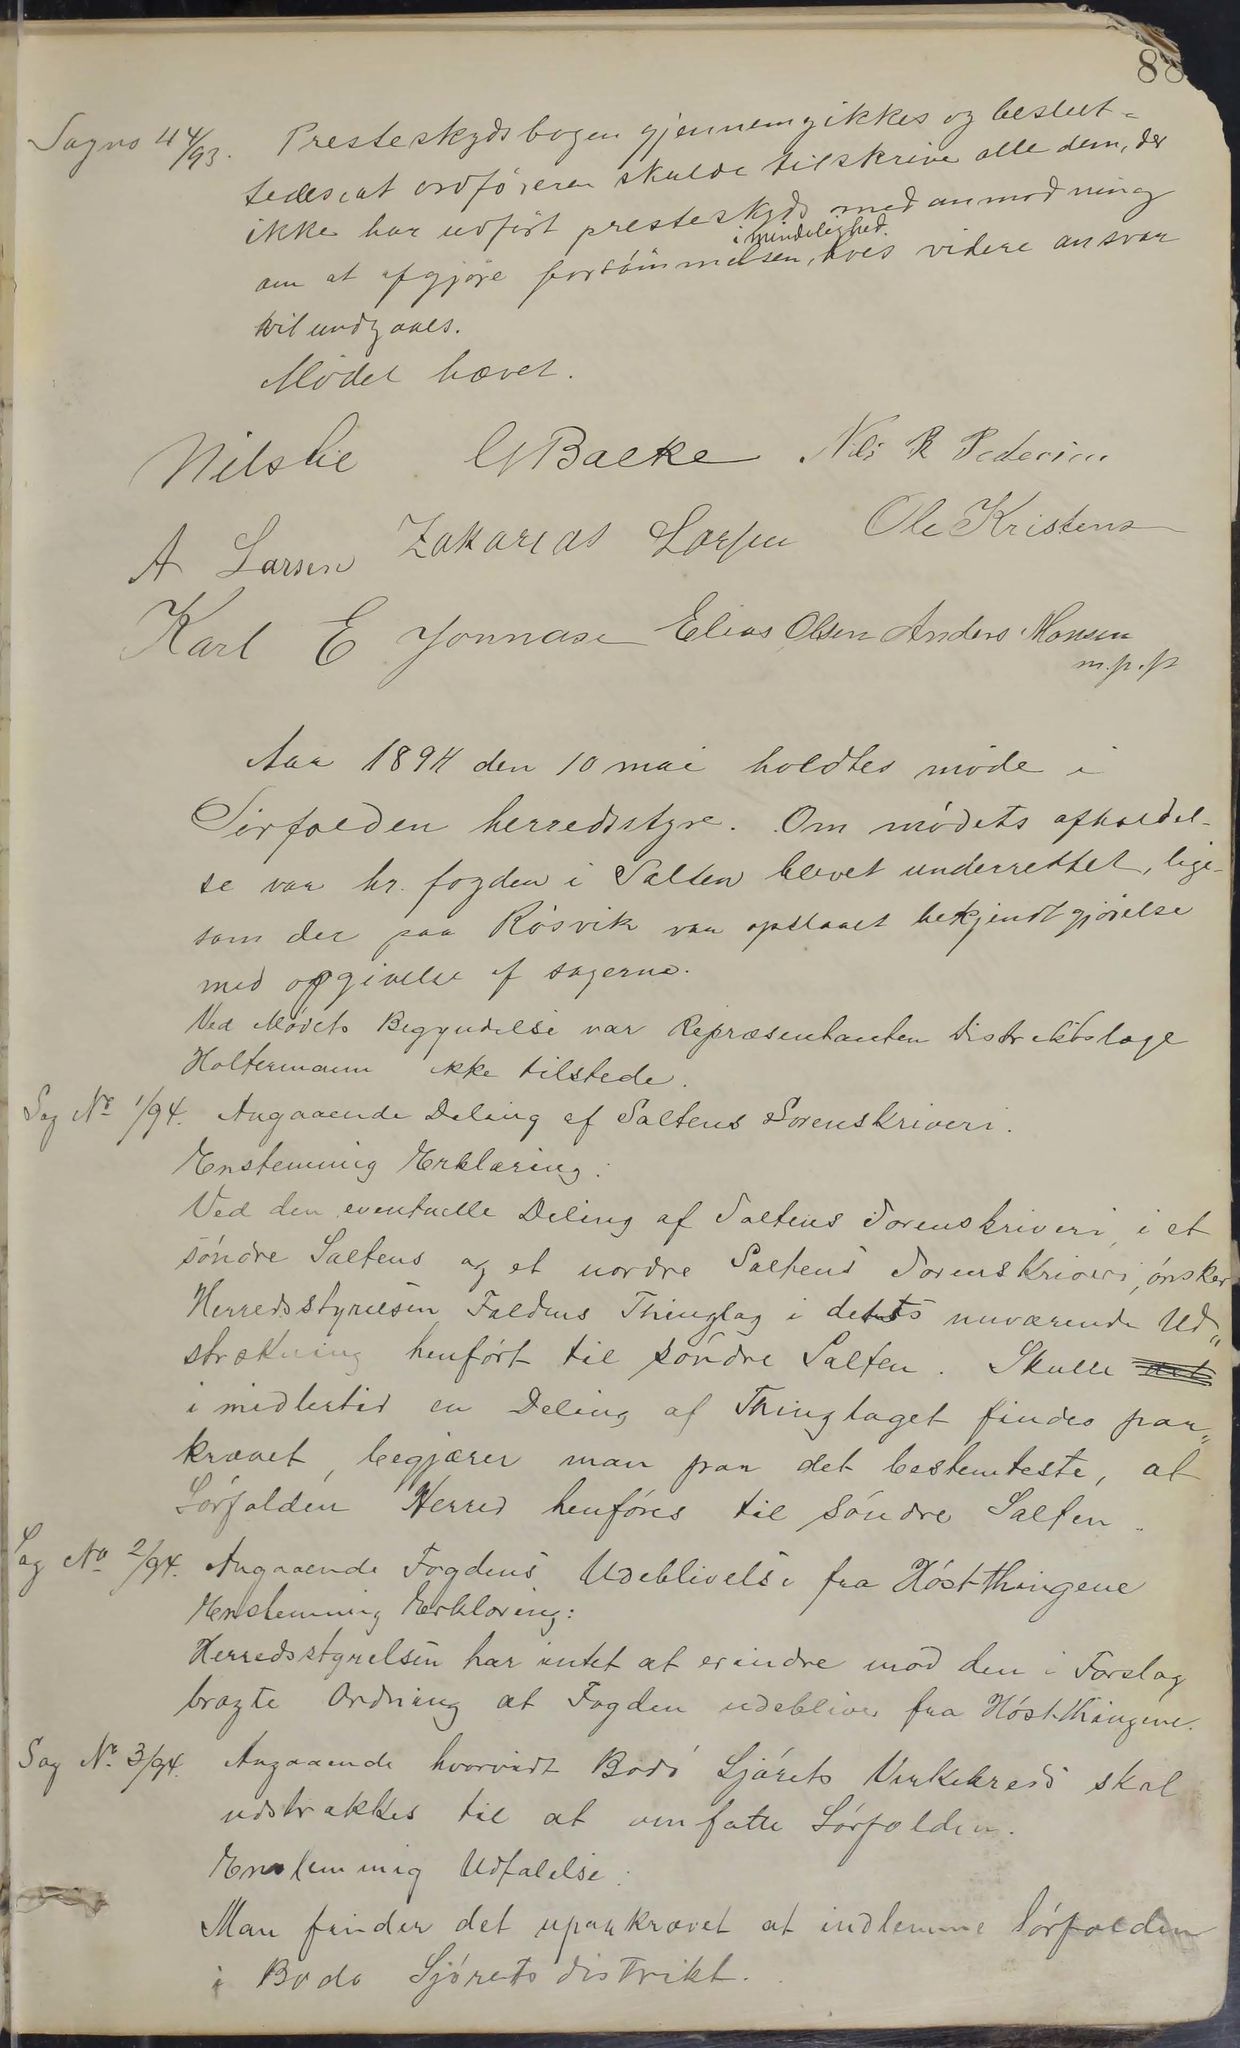 88
Sagno 44/93. Presteskydsbogen gjennemgikkes og beslut-
tedes at ordføreren skulde tilskrive alle dem, der
ikke har udført presteskyds med anmodning
i mindelighed.
om at afgjøre forsømmelsen, hvis videre ansvar
vil undgaaes.
Mødet hævet.
Nils Lie G Bakke Nils R Pedersen
A Larsen Zakarias Larsen Ole Kristens
Karl E Jonnase Elias Olsen Anders Monsen
m.p.p
Aar 1894 den 10 mai holdtes møde i
Sørfolden herredsstyre. Om mødets afholdel-
se var hr. fogden i Salten blevet underrettet, lige-
som der paa Røsvik var opslaaet bekjendtgjørelse
med opgivelse af sagerne.
Ved Mødets Begyndelse var Repræsentanten Distriktslæge
Holtermann ikke tilstede.
Sag No 1/94. Angaaende Deling af Saltens Sorenskriveri.
Enstemmig Erklæring:
Ved den eventuelle Deling af Saltens Sorenskriveri, i et
søndre Saltens og et nordre Saltens Sorenskriveri, ønsker
Herredsstyrelsen Foldens Thinglag i dets nuværende Ud„
strækning henført til søndre Salten. Skulle det
imidlertid en Deling af Thinglaget findes paa„
krævet, begjærer man paa det bestemteste, at
Sørfolden Herred henføres til søndre Salten.
Sag No 2/94. Angaaende Fogdens Udeblivelse fra Høstthingene
Enstemmig Erklæring:
Herredsstyrelsen har intet at erindre mod den i Forslag
bragte Ordning at Fogden udebliver fra Høstthingene.
Sag No 3/94. Angaaende hvorvidt Bodø Sjørets Virkekreds skal
udstrækkes til at omfatte Sørfolden.
Enstemmig Udtalelse:
Man finder det upaakrævet at indlemme Sørfolden
i Bodø Sjøretsdistrikt.